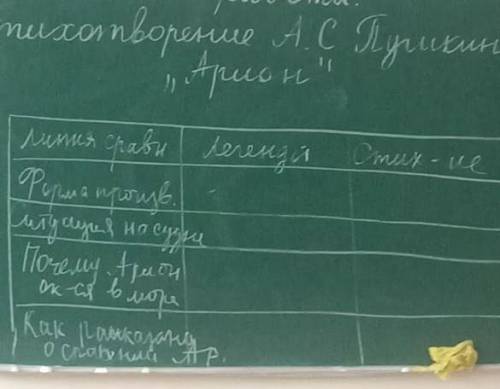 работы.
тихотворение А.С Пушкин
„Арион"
линия сравн легенда Стих-ие
Форма произв. -
итуация на судне
Почему Арион
ок-ся в море
Как рассказано
о спасении Ар.